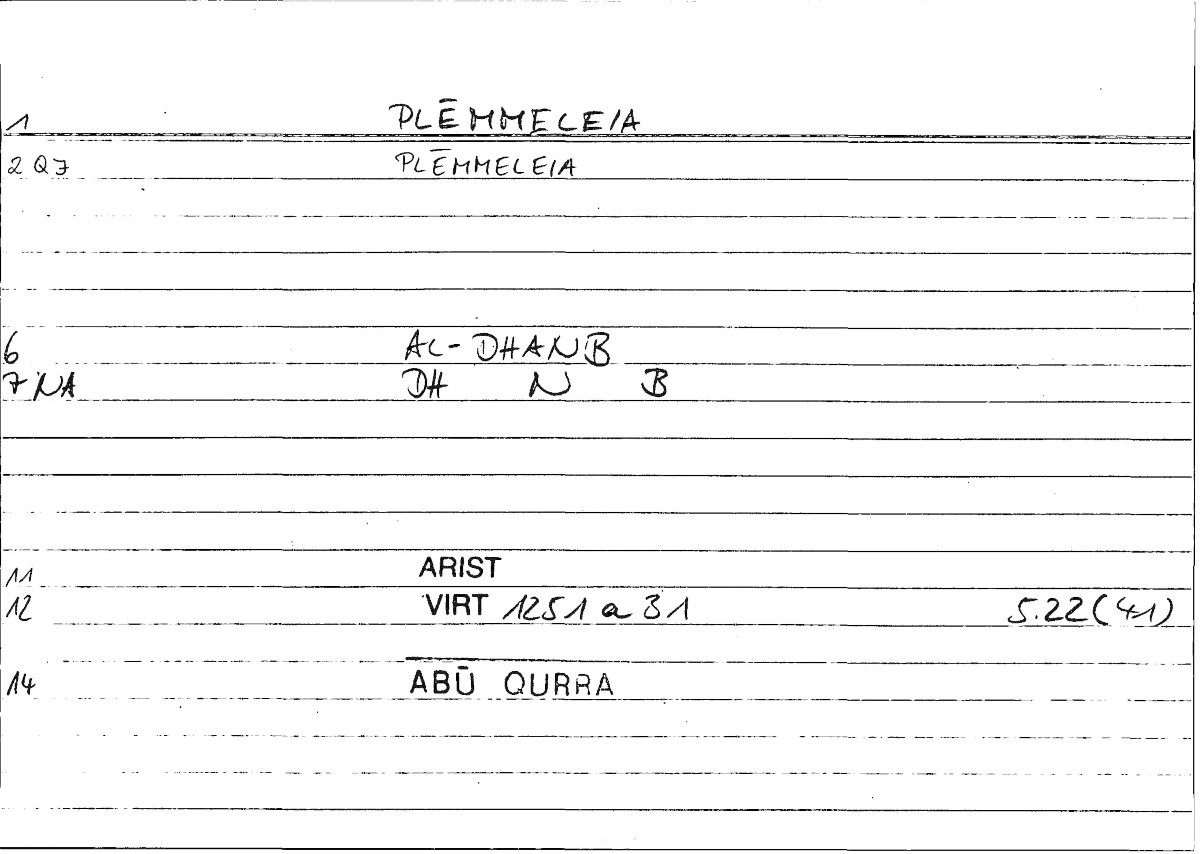 1 PLĒMMELEIA
2 Q7 PLĒMMELEIA
6 AL-DHANB
7 NA DH N B
11 ARIST
12 VIRT 1251 a 31 5.22(41)
14 ABŪ QURRA